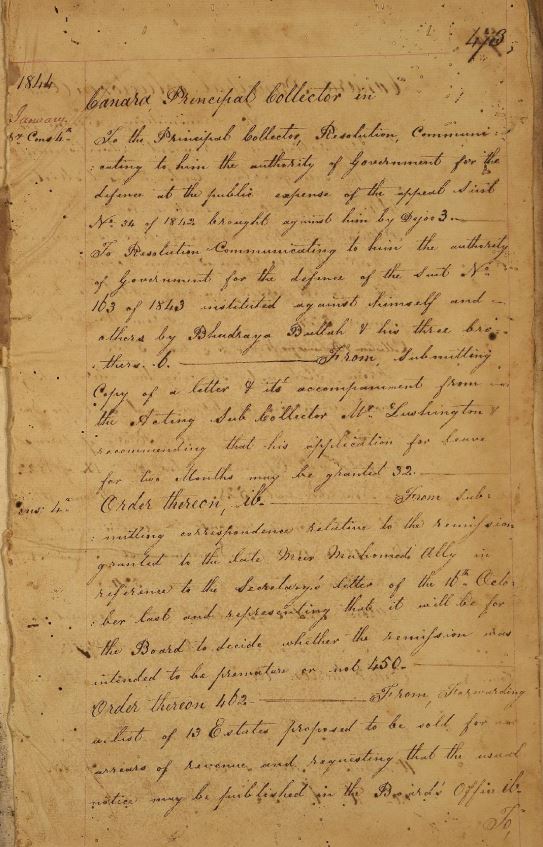 473
1844
Canara Principal Collector in
January
To the Principal Collector, Resolution, Communi:
Cons 4th
:cating to him the authority of Government for the
defence at the public expense of the appeal Suit
No. 34 of 1842 brought against him by 3
To Resolution Communicating to him the authority
of Government for the defence of the Suit No.
163 of 1843 instituted against himself and
others by Bhudraya Bullah & his three bro:
:thers. 6. From, Submitting
Copy of a letter & its accompaniment from
the Acting Sub Collector Mr. Lushington &
recommending that his application for leave
for two Months may be granted 32.
Cons: 4th
Order thereon, ib. From Sub:
:mitting correspondence relative to the remission
granted to the late Meer Mahomed Ally in
reference to the Secretary's letter of the 16th Octo:
:ber last and representing that it will be for
the Board to decide whether the remission was
intended to be premature or not 450.
Order thereon 462. From, Forwarding
a list of 13 Estates proposed to be sold for
arrears of revenue and requesting that the usual
notice may be published in the Board's Office ib.
To,